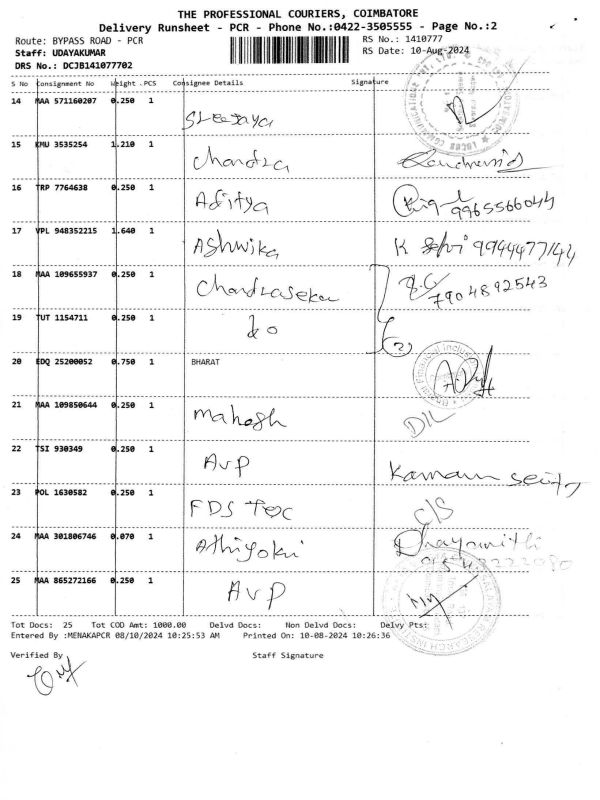 THE PROFESSIONAL COURIERS, COIMBATORE
Delivery Runsheet - PCR - Phone No.:0422-3505555 - Page No.:2
Route: BYPASS ROAD - PCR
RS No.: 1410777
Staff: UDAYAKUMAR
RS Date: 10-Aug-2024
DRS No.: DCJB141077702
S No Consignment No Weight . PCS Consignee Details Signature
14 MAA 571160207 0.250 1 Sreejaya
15 KMU 3535254 1.210 1 Chandra
16 TRP 7764638 0.250 1 Aditya 9965566044
17 VPL 948352215 1.640 1 Ashwika K Selvi 9944477144
18 MAA 109655937 0.250 1 Chandrasekar 7904892543
19 TUT 1154711 0.250 1 do (2)
20 EDQ 25200052 0.750 1 BHARAT
21 MAA 109850644 0.250 1 Mahesh
22 TSI 930349 0.250 1 AVP
23 POL 1630582 0.250 1 FDS TEC C/S
24 MAA 301806746 0.070 1 Athiyokri
25 MAA 865272166 0.250 1 AVP
Tot Docs: 25 Tot COD Amt: 1000.00 Delvd Docs: Non Delvd Docs: Delvy Pts:
Entered By :MENAKAPCR 08/10/2024 10:25:53 AM Printed On: 10-08-2024 10:26:36
Verified By Staff Signature